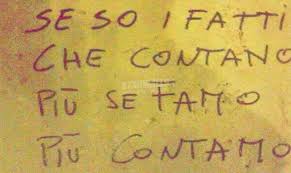 SE SO I FATTI
CHE CONTANO
PIÙ SE TAMO
PIÙ CONTAMO